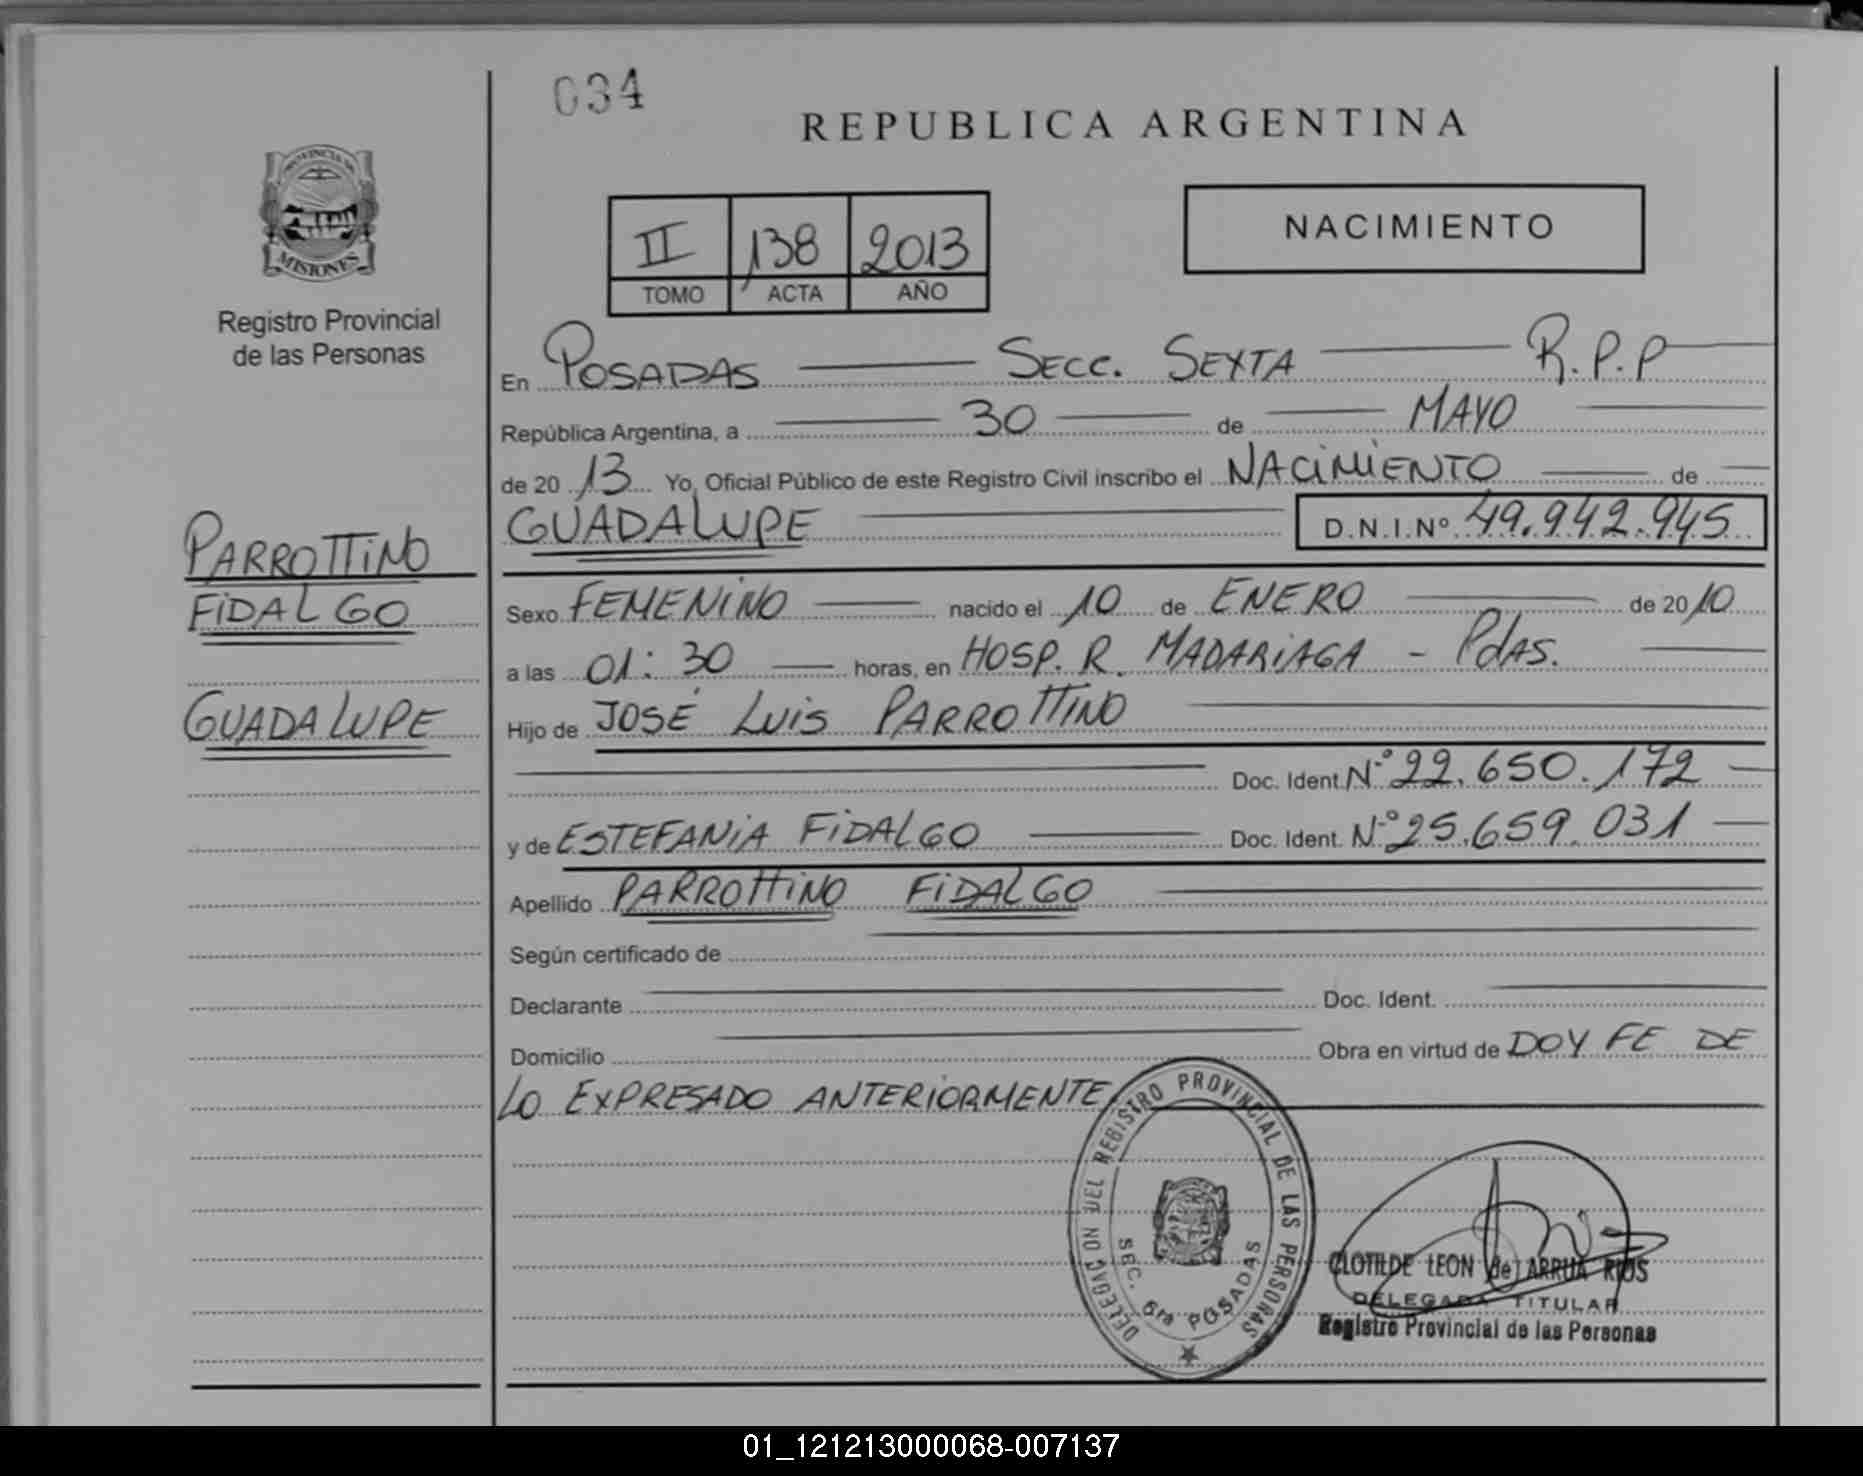 034
REPUBLICA ARGENTINA
PROVINCIA DE
MISIONES
Registro Provincial
de las Personas
II 138 2013
TOMO ACTA AÑO
NACIMIENTO
En POSADAS SECC. SEXTA R.P.P
República Argentina, a 30 de MAYO
de 20 13 Yo, Oficial Público de este Registro Civil inscribo el NACIMIENTO de
GUADALUPE D.N.I.Nº 49.942.945
PARROTTINO
FIDALGO
GUADALUPE
Sexo FEMENINO nacido el 10 de ENERO de 20 10
a las 01:30 horas, en HOSP. R. MADARIAGA - PdAS.
Hijo de JOSÉ LUIS PARROTTINO
Doc. Ident. Nº 22.650.172
y de ESTEFANIA FIDALGO Doc. Ident. Nº 25.659.031
Apellido PARROTTINO FIDALGO
Según certificado de
Declarante Doc. Ident.
Domicilio Obra en virtud de DOY FE DE
LO EXPRESADO ANTERIORMENTE
DELEGACION DEL REGISTRO PROVINCIAL DE LAS PERSONAS
SEC. 6ta POSADAS
CLOTILDE LEON de ARRUA RIOS
DELEGADA TITULAR
Registro Provincial de las Personas
01_121213000068-007137